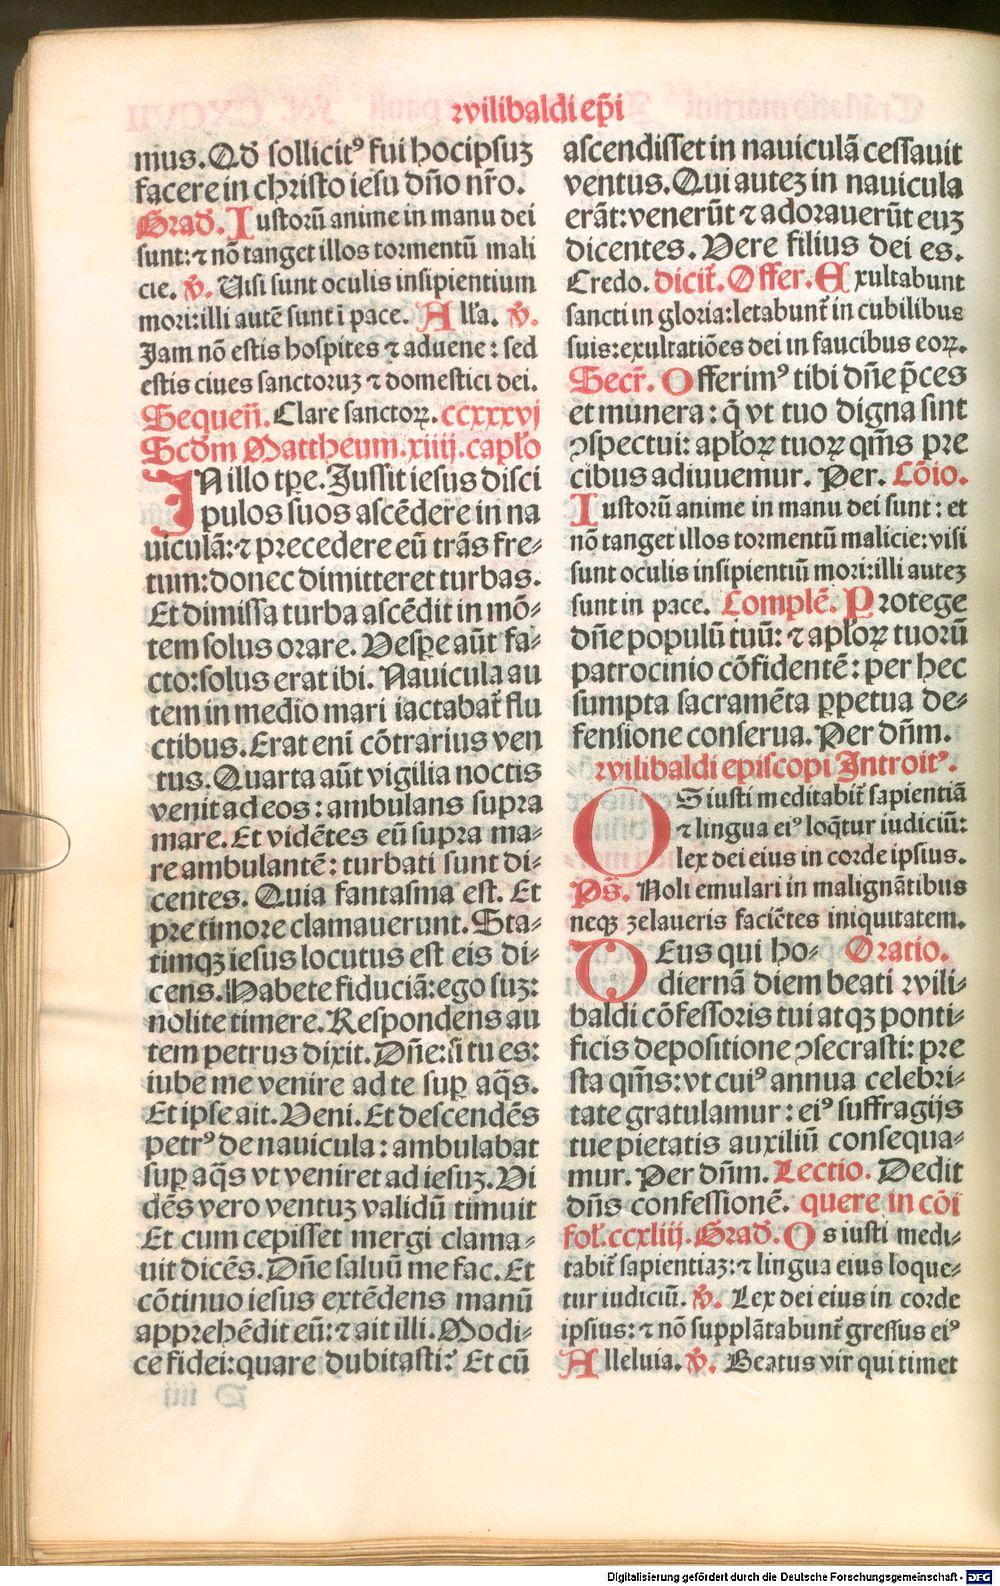 wilibaldi ep̄i
mus. Qd̄ sollicitꝰ fui hoc ipsuꝫ
facere in christo iesu dn̄o nr̄o.
Grad̄. Iustorū anime in manu dei
sunt: ⁊ nō tanget illos tormentū mali
cie. ℣. Uisi sunt oculis insipientium
mori: illi autē sunt ī pace. All'a. ℣.
Jam nō estis hospites ⁊ aduene: sed
estis ciues sanctoruꝫ ⁊ domestici dei.
Sequen̄. Clare sanctoꝝ. ccxxxvj
Scd̄m Mattheum. xiiij. capl'o
IN illo tp̄e. Jussit iesus disci
pulos suos ascēdere in na
uiculā: ⁊ precedere eū trās fre⸗
tum: donec dimitteret turbas.
Et dimissa turba ascēdit in mō⸗
tem solus orare. Vesp̄e aūt fa⸗
cto: solus erat ibi. Nauicula au
tem in medio mari iactabat̄ flu
ctibus. Erat enī cōtrarius ven
tus. Quarta aūt vigilia noctis
venit ad eos: ambulans supra
mare. Et vidētes eū supra ma⸗
re ambulantē: turbati sunt di⸗
centes. Quia fantasma est. Et
pre timore clamauerunt. Sta⸗
timqꝫ iesus locutus est eis di⸗
cens. Habete fiduciā: ego suꝫ:
nolite timere. Respondens au
tem petrus dixit. Dn̄e: si tu es:
iube me venire ad te suꝑ aq̄s.
Et ipse ait. Veni. Et descendēs
petrꝰ de nauicula: ambulabat
suꝑ aq̄s vt veniret ad iesuꝫ. Vi
dēs vero ventuꝫ validū timuit
Et cum cepisset mergi clama⸗
uit dicēs. Dn̄e saluū me fac. Et
cōtinuo iesus extēdens manū
apprehēdit eū: ⁊ ait illi. Modi⸗
ce fidei: quare dubitasti? Et cū
ascendisset in nauiculā cessauit
ventus. Qui auteꝫ in nauicula
erāt: venerūt ⁊ adorauerūt euꝫ
dicentes. Vere filius dei es.
Credo. dicit̄. Offer. Exultabunt
sancti in gloria: letabunt̄ in cubilibus
suis: exultatiōes dei in faucibus eoꝝ.
Secr̄. Offerimꝰ tibi dn̄e p̄ces
et munera: q̄ vt tuo digna sint
ꝯspectui: apl'oꝝ tuoꝝ qm̄s pre
cibus adiuuemur. Per. Cōio.
Iustorū anime in manu dei sunt: et
nō tanget illos tormentū malicie: visi
sunt oculis insipientiū mori: illi auteꝫ
sunt in pace. Complē. Protege
dn̄e populū tuū: ⁊ apl'oꝝ tuorū
patrocinio cōfidentē: per hec
sumpta sacramēta ꝑpetua de⸗
fensione conserua. Per dn̄m.
wilibaldi episcopi Introitꝰ.
OS iusti meditabit̄ sapientiā
⁊ lingua eiꝰ loq̄tur iudiciū:
lex dei eius in corde ipsius.
Ps̄. Noli emulari in malignātibus
neqꝫ zelaueris faciētes iniquitatem.
DEus qui ho⸗ Oratio.
diernā diem beati wili⸗
baldi cōfessoris tui atqꝫ ponti⸗
ficis depositione ꝯsecrasti: pre
sta qm̄s: vt cuiꝰ annua celebri⸗
tate gratulamur: eiꝰ suffragijs
tue pietatis auxiliū consequa⸗
mur. Per dn̄m. Lectio. Dedit
dn̄s confessionē. quere in cōi
fol'. ccxliij. Grad̄. Os iusti medi⸗
tabit̄ sapientiaꝫ: ⁊ lingua eius loque⸗
tur iudiciū. ℣. Lex dei eius in corde
ipsius: ⁊ nō supplātabunt̄ gressus eiꝰ
Alleluia. ℣. Beatus vir qui timet
Digitalisierung gefördert durch die Deutsche Forschungsgemeinschaft - DFG